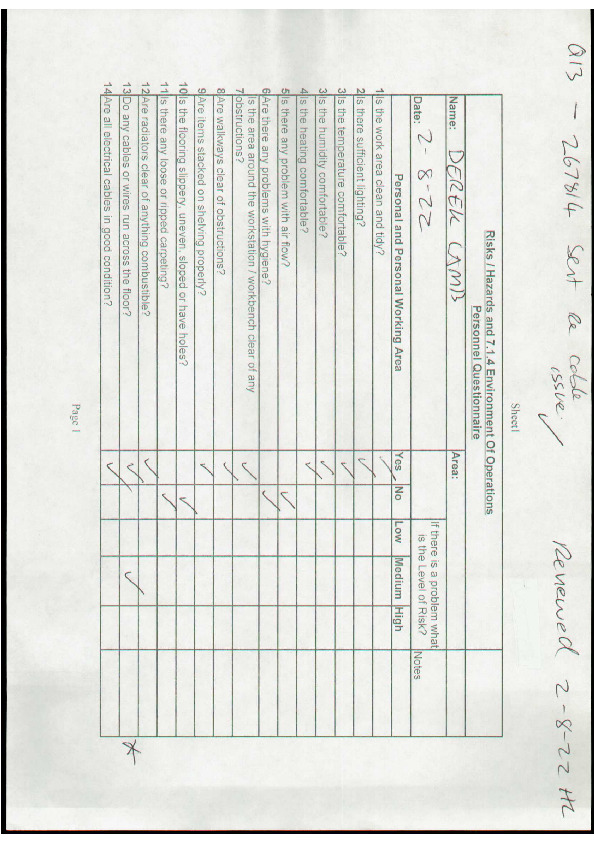 Q13 – 267814 Sent re cable Reviewed 2-8-22 HL
issue. ✓
Sheet1
Risks / Hazards and 7.1.4 Environment Of Operations
Personnel Questionnaire
Name: DEREK LAMB Area:
Date: 2-8-22 If there is a problem what is the Level of Risk? Notes
Personal and Personal Working Area Yes No Low Medium High
1 Is the work area clean and tidy? ✓
2 Is there sufficient lighting? ✓
3 Is the temperature comfortable? ✓
3 Is the humidity comfortable? ✓
4 Is the heating comfortable? ✓
5 Is there any problem with air flow? ✓
6 Are there any problems with hygiene? ✓
Is the area around the workstation / workbench clear of any
7 obstructions? ✓
8 Are walkways clear of obstructions? ✓
9 Are items stacked on shelving properly? ✓
10 Is the flooring slippery, uneven, sloped or have holes? ✓
11 Is there any loose or ripped carpeting? ✓
12 Are radiators clear of anything combustible? ✓
13 Do any cables or wires run across the floor? ✓ ✓ *
14 Are all electrical cables in good condition? ✓
Page 1